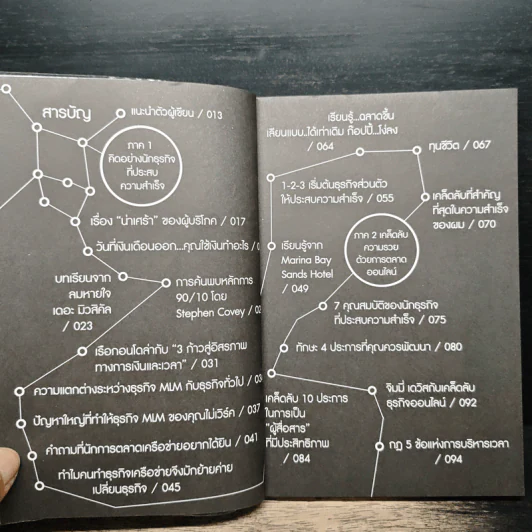 สารบัญ
แนะนำตัวผู้เขียน / 013
ภาค 1
คิดอย่างนักธุรกิจ
ที่ประสบ
ความสำเร็จ
เรื่อง "น่าเศร้า" ของผู้บริโภค / 017
วันที่เงินเดือนออก...คุณใช้เงินทำอะไร /
บทเรียนจาก
ลมหายใจ
เดอะ มิวสิคัล
/ 023
การค้นพบหลักการ
90/10 โดย
Stephen Covey /
เรือกอนโดล่ากับ "3 ก้าวสู่อิสรภาพ
ทางการเงินและเวลา" / 031
ความแตกต่างระหว่างธุรกิจ MLM กับธุรกิจทั่วไป /
ปัญหาใหญ่ที่ทำให้ธุรกิจ MLM ของคุณไม่เวิร์ค / 037
คำถามที่นักการตลาดเครือข่ายอยากได้ยิน / 041
ทำไมคนทำธุรกิจเครือข่ายจึงมักย้ายค่าย
เปลี่ยนธุรกิจ / 045
เรียนรู้...ฉลาดขึ้น
เลียนแบบ..ได้เท่าเดิม ก๊อปปี้...โง่ลง
/ 064
ทุนชีวิต / 067
1-2-3 เริ่มต้นธุรกิจส่วนตัว
ให้ประสบความสำเร็จ / 055
เคล็ดลับที่สำคัญ
ที่สุดในความสำเร็จ
ของผม / 070
ภาค 2 เคล็ดลับ
ความรวย
ด้วยการตลาด
ออนไลน์
เรียนรู้จาก
Marina Bay
Sands Hotel
/ 049
7 คุณสมบัติของนักธุรกิจ
ที่ประสบความสำเร็จ / 075
ทักษะ 4 ประการที่คุณควรพัฒนา / 080
เคล็ดลับ 10 ประการ
ในการเป็น
"ผู้สื่อสาร"
ที่มีประสิทธิภาพ
/ 084
จิมมี่ เดวิสกับเคล็ดลับ
ธุรกิจออนไลน์ / 092
กฎ 5 ข้อแห่งการบริหารเวลา
/ 094